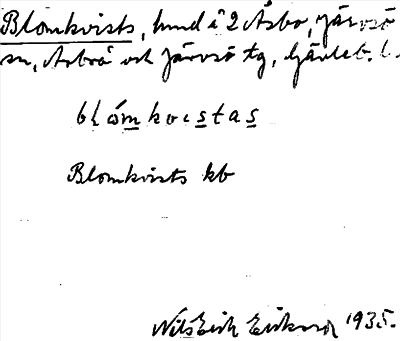 Blomkvists, hmd å 2 Åsbo, Järvsö
sn, Arbrå och Järvsö tg, Gävleb. l.
blómkvistas
Blomkvists kb
Nils Erik Eriksson 1935.